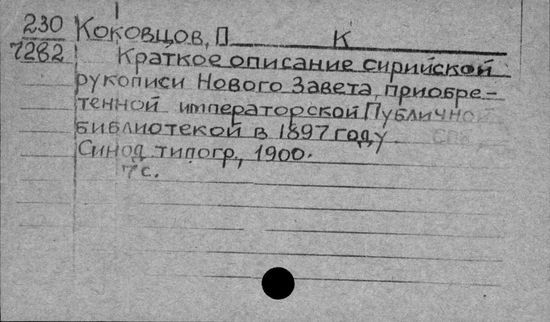 230
7282
Коковцов, П К
Краткое описание сирийской
рукописи Нового Завета, приобре-
тенной императорской Публичной
библиотекой в 1897 году. СПб,
Синод. типогр., 1900.
7 с.